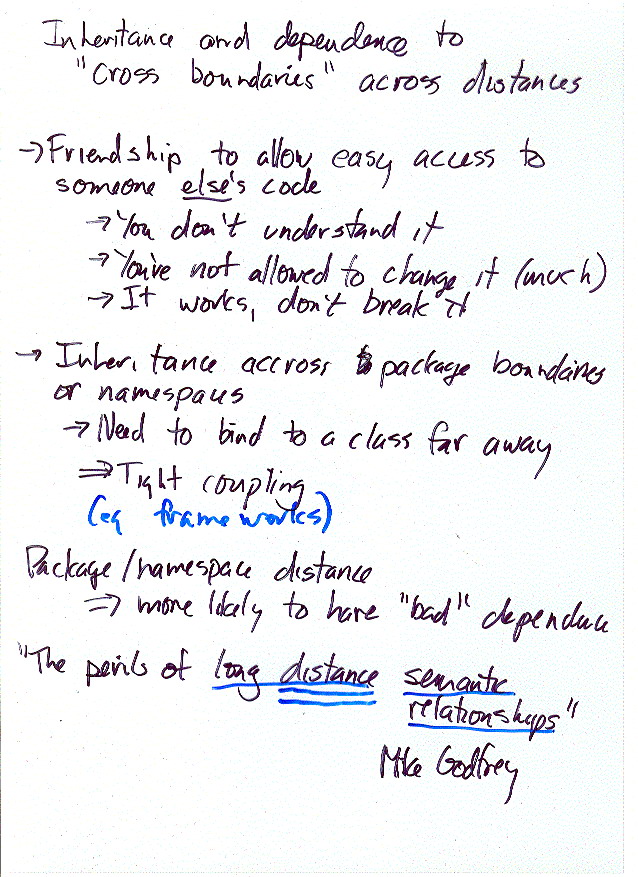 Inheritance and dependence to
"Cross boundaries" across distances
→ Friendship to allow easy access to
someone else's code
→ You don't understand it
→ You've not allowed to change it (much)
→ It works, don't break it
→ Inheritance accross package boundaries
or namespaces
→ Need to bind to a class far away
⇒ Tight coupling
(eg frameworks)
Package/namespace distance
⇒ more likely to have "bad" dependence
"The perils of long distance semantic
relationships"
Mike Godfrey